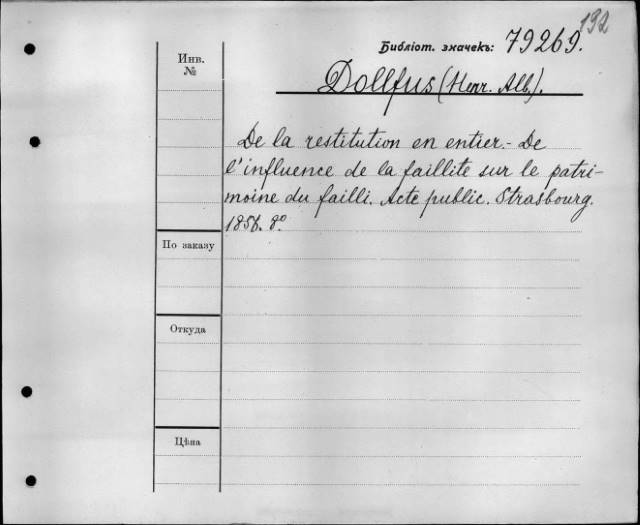 192
Библіот. значекъ: 79269.
Инв.
№
Dollfus (Henr. Alb.).
De la restitution en entier. - De
l'influence de la faillite sur le patri-
moine du failli. Acte public. Strasbourg.
1856. 8º.
По заказу
Откуда
Цѣна